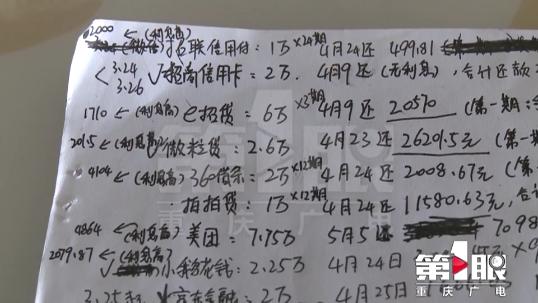 2000 ←(利息高) 招联信用付：1万×24期 4月24还 499.81
3.24 3.26 √招商信用卡：2万. 4月9还 (无利息), 合计还款
1710 ←(利息高) e招贷：6万×3期 4月9还 20570 (第一期：
2015 ←(利息高) 微粒贷：2.6万 4月23还 26201.5元 (第一期
4104 ←(利息高) 360借条：2万×12期 4月24还 2008.67元 (第
拍拍贷：1万×12期 4月24还 11580.63元, 合计
4864 ←(利息高) 美团：7.75万 5月5还 7098
2079.87 ←(利息高) 小 花钱：2.25万 4月24日
3.25 京东金融：2万 4月25日
第1眼
重庆广电
第1眼
重庆广电